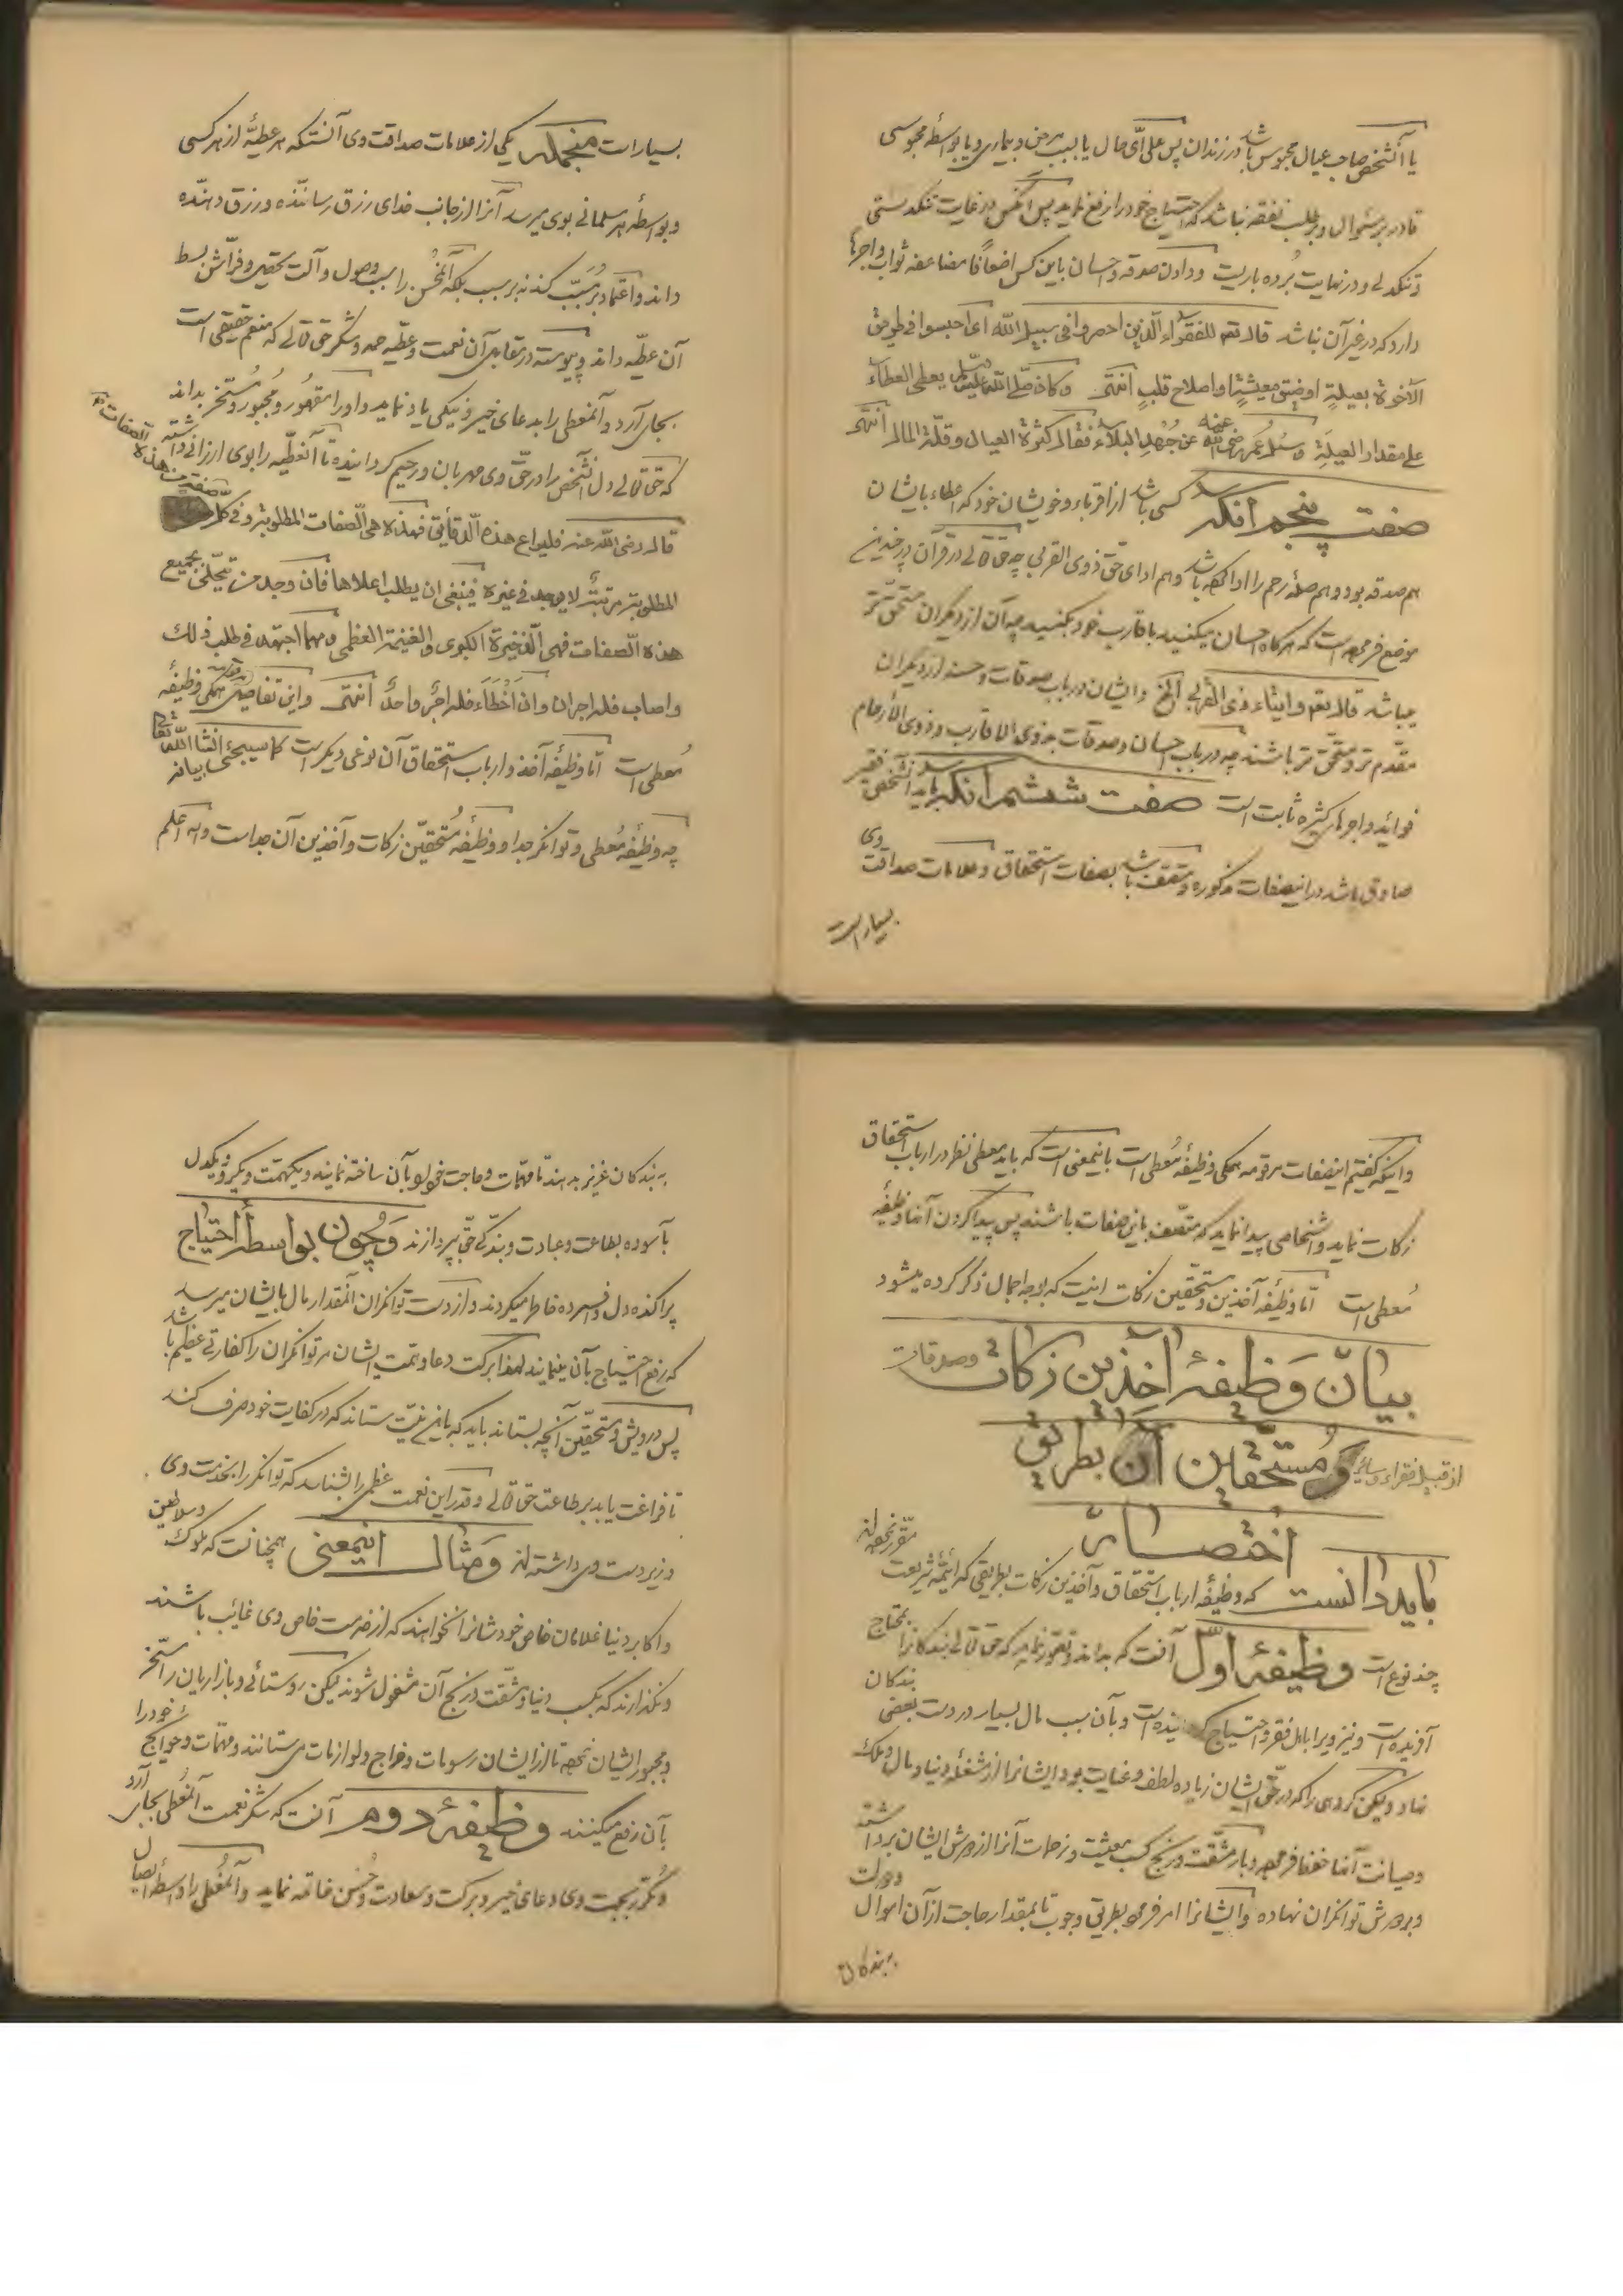 یا آنشخص صاحب عیال محبوس باشد در زندان پس علی ایّ حال یا بسبب مرض و بیماری و یا بواسطهٔ محبوسی
قادر بر سؤال و بر طلب نفقه نباشد که احتیاج خود را رفع نماید پس آنکس در غایت تنکدستی
و تنکدلی و در نهایت بُرده باریست و دادن صدقه و احسان باین کس اضعافا مضاعفه ثواب و اجرها
دارد که در غیر آن نباشد قال تعم للفقراء الّذین احصروا فی سبیل الله ای احبسوا فی طریق
الآخرة بعیلةٍ او ضیق معیشةٍ او اصلاح قلبٍ انتهی و کان صلّی الله علیه و سلّم یعطی العطاء
علی مقدار العیلَة و سُئل عُمر رضی الله عنه عن جُهْد البلاء فقال کثرة العیال و قلّة المال انتهی
صفت پنجم آنکه کسی باشد از اقرباء و خویشان خود که اعطاء بایشان
هم صدقه بود و هم صلهٔ رحم را ادا کرده باشد و هم ادای حقّ ذوی القربی چه حق تعالی در قرآن در چندین
موضع فرموده است که هرکاه احسان میکنید باقارب خود بکنید چه آن از دیکران مستحقّ تر
میباشد قال تعم و ایتاء ذی القربی الخ و ایشان در باب صدقات و حسنه از دیکران
مقدّم تر و مستحقّ تر باشند چه در باب احسان و صدقات بذوی الاقارب و ذوی الأرحام
فوائد و اجرهای کثیره ثابت است صفت ششم آنکه باید آنشخص فقیر
صادق باشد در اینصفات مذکوره و متصف باشد بصفات استحقاق و علامات صداقت وی
بسیار است
بسیار است منجمله یکی از علامات صداقت وی آنستکه هر عطیّهٔ از هر کسی
و بواسطهٔ هر مسلمانی بوی میرسد آنرا از جانب خدای رزق رساننده و رزق دهنده
داند و اعتماد بر مُسَبِّب کند نه بر سبب بلکه آنکس را سبب وصول و آلت تحصیر و فرّاش بسط
آن عطیّه داند و پیوسته در مقابل آن نعمت و عطیّه حمد و شکر حق تعالی که منعم حقیقی است
بجای آرد و آنمعطی را بدعای خیر و نیکی یاد نماید و او را مقهُور و مجبور و مُسَخّر بداند
که حق تعالی دل آنشخص را در حقّ وی مهربان و رحیم کردانیده تا آنعطیّه را بوی ارزانی داشته
قال رضی الله عنه فلیراع هذه الدّقایق فهذه هی الصّفات المطلوبة و فی کل صفة من هذه الصفات
المطلوبة مرتبةٌ لا یوجد فی غیره فینبغی ان یطلب اعلاها فان وجد من تجلّی بجمیع
هذه الصّفات فهی الذّخیرة الکبری و الغنیمة العظمی و مهما اجتهد فی طلب ذلک
و اصاب فله اجران و ان اَخْطَاَء فله اجرٌ واحدٌ انتهی و این تفاصیل همکی وظیفهٔ
مُعطی است امّا وظیفهٔ آخذ و ارباب استحقاق آن نوعی دیکر است کما سیجئ انشا الله تعالی بیانه
چه وظیفهٔ مُعطی و توانکر جدا و وظیفهٔ مُستحقّین زکات و آخذین آن جداست والله اعلم
و اینکه کفتیم اینصفات مرقومه همکی وظیفهٔ مُعطی است باینمعنی است که باید معطی نظر در ارباب استحقاق
زکات نماید و اشخاصی پیدا نماید که متّصف باین صفات باشند پس پیدا کردن آنها وظیفهٔ
مُعطی است امّا وظیفهٔ آخذین و مستحقّین زکات اینست که بوجه اجمال ذکر کرده میشود
بیان وَظیفۀ آخذین زکات و صدقات
از قبیل فقراء و سائر وَ مُستحقّین آن بطریق
اختصار
باید دانست که وظیفهٔ ارباب استحقاق و آخذین زکات بطریقی که ائمّهٔ شریعت مقرّر نموده اند
چند نوع است وظیفۀ اوّل آنست که بداند و تصوّر نماید که حق تعالی بندکانرا محتاج
آفریده است و نیز ویرا باهل فقر و احتیاج کردانیده است و بآن سبب مال بسیار در دست بعضی بندکان
نهاد و لیکن کروهی را که در حقّ ایشان زیاده لطف و عنایت بود ایشانرا از مشغلهٔ دنیا و مال و ملک
و صیانت آنها حفظ فرموده و بار مشقّت و رنج کسب معیشت و زحمات آنرا از دوش ایشان برداشته
و بر دوش توانکران نهاده و ایشانرا امر فرموده بطریق وجوب تا بمقدار حاجت از آن اموال و دولت
به بندکان
به بندکان عزیز بدهند تا مهمّات و حاجت خود را بآن ساخته نمایند و یکهمّت و یکرو و یکدل
بآسوده بطاعت و عبادت و بندکی حقّ بپردازند وَ چُون بواسطۀ احتیاج
پراکنده دل و افسرده خاطر میکردند و از دست توانکران آنمقدار مال بایشان میرسد
که رفع احتیاج بآن مینمایند لهذا برکت دعا و همّت ایشان مر توانکران را کفارتی عظیم باشد
پس درویش و مستحقّین آنچه بستاند باید که باین نیّت ستاند که در کفایت خود صرف کند
تا فراغت یابد بر طاعت حق تعالی و قدر این نعمت عظمی را بشناسد که توانکر را بخدمت وی
و زیر دست وی داشته اند وَ مثال اینمعنی همچنانست که ملوک و سلاطین
و اکابر دنیا غلامان خاص خودشانرا نخواهند که از خدمت خاص وی غائب باشند
و نکذارند که بکسب دنیا و مشقّت و رنج آن مشغول شوند لیکن روستائی و بازاریان را مسخّر
و مجبور ایشان نموده تا از ایشان رسومات و خراج و لوازمات می ستانند و مهمّات و حوائج خود را
بآن رفع میکنند وظیفۀ دوم آنست که شکر نعمت آنمُعطی بجای آرد
و مُکرّر بجهت وی دعای خیر و برکت و سعادت و حُسن خاتمه نماید و آنمُعطی را واسطهٔ ایصال